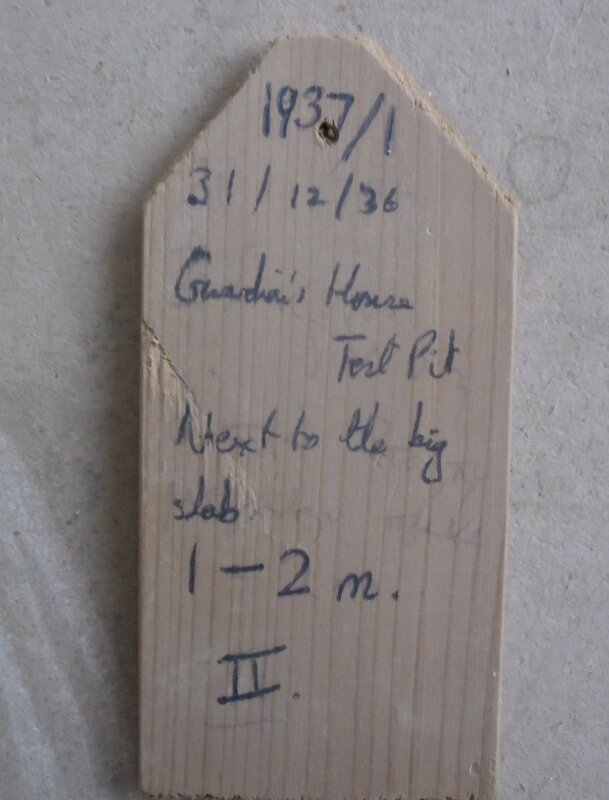 1937/1
31/12/36
Guardia's House
Test Pit
Next to the big
slab
1-2 m.
II.